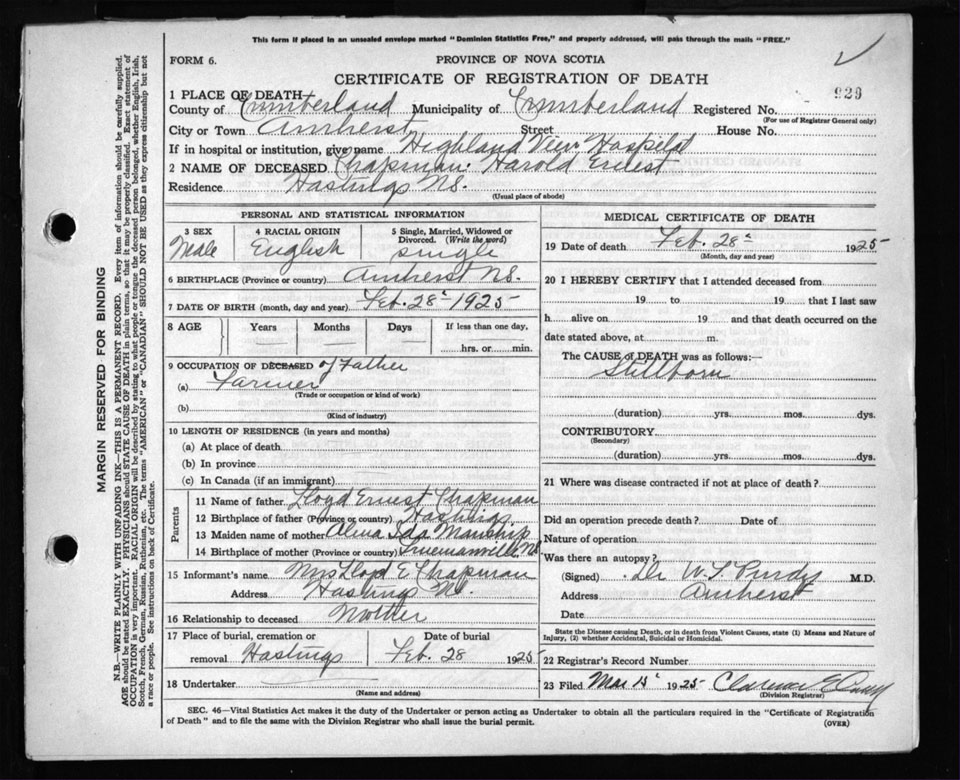 This form if placed in an unsealed envelope marked "Dominion Statistics Free," and properly addressed, will pass through the mails "FREE."
FORM 6.
PROVINCE OF NOVA SCOTIA
CERTIFICATE OF REGISTRATION OF DEATH
929
1 PLACE OF DEATH
County of Cumberland Municipality of Cumberland Registered No.
(For use of Registrar General only)
City or Town Amherst Street House No.
If in hospital or institution, give name Highland View Hospital
2 NAME OF DECEASED Chapman. Harold Ernest
Residence Hastings NS.
(Usual place of abode)
PERSONAL AND STATISTICAL INFORMATION
3 SEX
Male
4 RACIAL ORIGIN
English
5 Single, Married, Widowed or Divorced. (Write the word)
single
6 BIRTHPLACE (Province or country) Amherst NS.
7 DATE OF BIRTH (month, day and year) Feb. 28 1925
8 AGE Years Months Days If less than one day,
hrs. or min.
9 OCCUPATION OF DECEASED of Father
(a) Farmer
(Trade or occupation or kind of work)
(b)
(Kind of industry)
10 LENGTH OF RESIDENCE (in years and months)
(a) At place of death
(b) In province
(c) In Canada (if an immigrant)
Parents
11 Name of father Lloyd Ernest Chapman
12 Birthplace of father (Province or country) Hastings
13 Maiden name of mother Alma
14 Birthplace of mother (Province or country) Truemanville NS
15 Informant's name Mrs Lloyd E Chapman
Address Hastings NS.
16 Relationship to deceased Mother
17 Place of burial, cremation or removal Hastings
Date of burial
Feb. 28 1925
18 Undertaker
(Name and address)
MEDICAL CERTIFICATE OF DEATH
19 Date of death Feb. 28 1925
(Month, day and year)
20 I HEREBY CERTIFY that I attended deceased from
19 to 19 that I last saw
h alive on 19 and that death occurred on the
date stated above, at m.
The CAUSE of DEATH was as follows:—
Stillborn
(duration) yrs. mos. dys.
CONTRIBUTORY
(Secondary)
(duration) yrs. mos. dys.
21 Where was disease contracted if not at place of death?
Did an operation precede death? Date of
Nature of operation
Was there an autopsy?
(Signed) Dr W.T. Purdy M.D.
Address Amherst
Date
State the Disease causing Death, or in death from Violent Causes, state (1) Means and Nature of
Injury, (2) whether Accidental, Suicidal or Homicidal.
22 Registrar's Record Number
23 Filed Mar 15 1925 Clarence E
(Division Registrar)
SEC. 46—Vital Statistics Act makes it the duty of the Undertaker or person acting as Undertaker to obtain all the particulars required in the "Certificate of Registration
of Death" and to file the same with the Division Registrar who shall issue the burial permit.
(OVER)
MARGIN RESERVED FOR BINDING
N.B.—WRITE PLAINLY WITH UNFADING INK—THIS IS A PERMANENT RECORD. Every item of information should be carefully supplied.
AGE should be stated EXACTLY. PHYSICIANS should STATE CAUSE OF DEATH in plain terms, so that it may be properly classified. Exact statement of
OCCUPATION is very important. RACIAL ORIGIN will be described by stating to what people or tongue the deceased person belonged, whether English, Irish,
Scotch, French, German, Russian, Ruthenian, etc. The terms "AMERICAN" or "CANADIAN" SHOULD NOT BE USED as they express citizenship but not
a race or people. See instructions on back of Certificate.